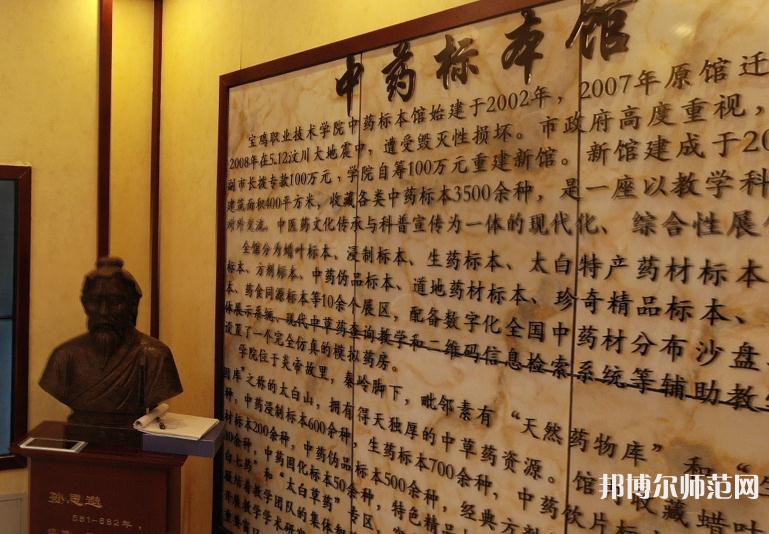 中药标本馆
宝鸡职业技术学院中药标本馆始建于2002年，2007年原馆迁
2008年在5.12汶川大地震中，遭受毁灭性损坏。市政府高度重视，
副市长拨专款100万元，学院自筹100万元重建新馆。新馆建成于20
建筑面积400平方米，收藏各类中药标本3500余种，是一座以教学科
对外交流。中医药文化传承与科普宣传为一体的现代化、综合性展
全馆分为蜡叶标本、浸制标本、生药标本、太白特产药材标本
标本、方剂标本、中药伪品标本、道地药材标本、珍奇精品标本、
、药食同源标本等10余个展区，配备数字化全国中药材分布沙盘
体展示系统、现代中草药查询教学和二维码信息检索系统等辅助教
设置了一个完全仿真的模拟药房。
学院位于炎帝故里，秦岭脚下，毗邻素有“天然药物库”和“
国库”之称的太白山，拥有得天独厚的中草药资源。馆 收藏蜡叶
种，中药浸制标本600余种，生药标本700余种，中药饮片标
材标本200余种，中药伪品标本500余种，经典方剂
余种，中药固化标本50余种，特色精品
白七药”和“太白草药”专区，
凝结着教学团队的集体和
孙思邈
581-682年，
邦博尔师范网